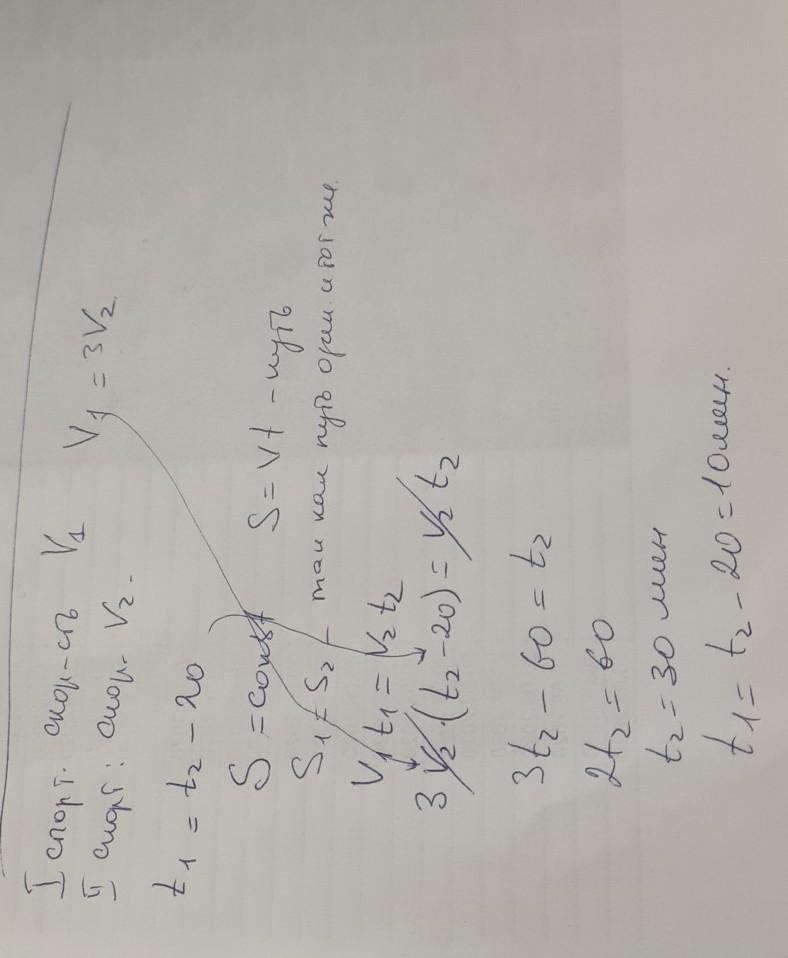 I спорт. скор-сть V₁ V₁ = 3V₂
II спорт: скор. V₂.
t₁ = t₂ - 20
S = const S = Vt - путь
S₁ = S₂ - так как путь один и тот же.
V₁t₁ = V₂t₂
3V₂·(t₂-20) = V₂t₂
3t₂ - 60 = t₂
2t₂ = 60
t₂ = 30 мин
t₁ = t₂ - 20 = 10 мин.